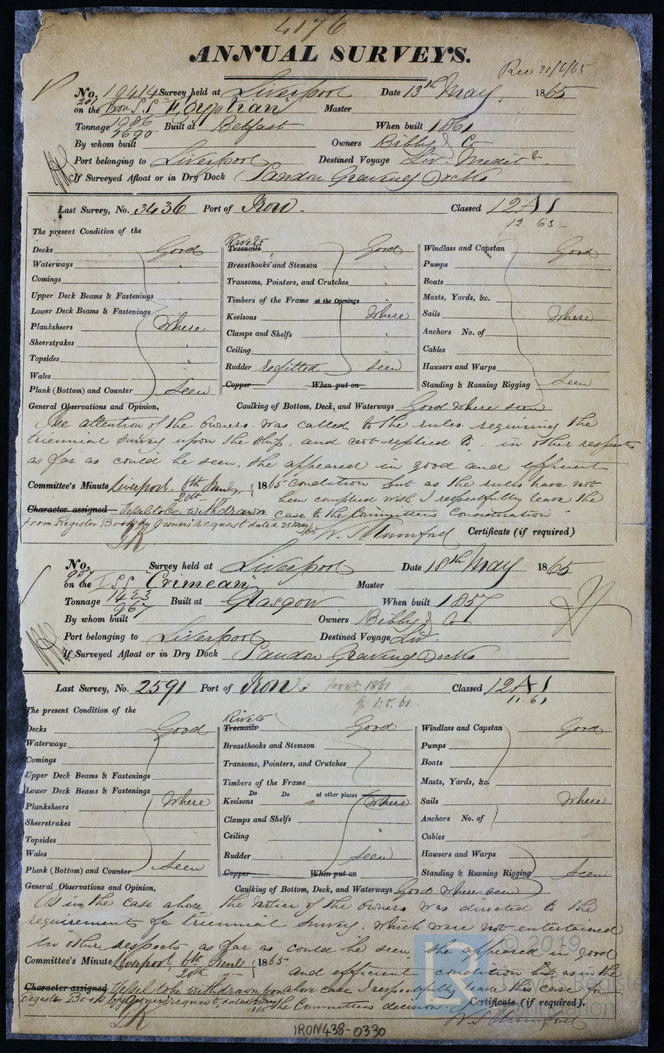 4176
ANNUAL SURVEYS.
Rec 21/6/65
No. 19414 Survey held at Liverpool Date 13th May, 1865
on the Iron S.S "Egyptian" Master
Tonnage 1986 Built at Belfast When built 1861
By whom built Owners Bibby & Co
Port belonging to Liverpool Destined Voyage Liv. Medit n
If Surveyed Afloat or in Dry Dock Sandon Graving Docks
Last Survey, No. 3436 Port of Iron. Classed 12A1
12 63
The present Condition of the
Decks Good Rivets Treenails Good Windlass and Capstan Good
Waterways Breasthooks and Stemson Pumps
Comings Transoms, Pointers, and Crutches Boats
Upper Deck Beams & Fastenings Timbers of the Frame at the Openings Masts, Yards, &c.
Lower Deck Beams & Fastenings Keelsons where Sails where
Planksheers where Clamps and Shelfs Anchors No. of
Sheerstrakes Ceiling Cables
Topsides Rudder refitted seen Hawsers and Warps
Wales Copper When put on Standing & Running Rigging seen
Plank (Bottom) and Counter seen
General Observations and Opinion, Caulking of Bottom, Deck, and Waterways Good where seen
The attention of the owners was called to the rules requiring the
triennial survey upon the ship, and not replied to. in other respects
as far as could be seen, she appeared in good and efficient
Committee's Minute Liverpool 6th June, 1865 condition but as the rules have not
20th been complied with I respectfully leave the
Character assigned Vessel to be withdrawn case to the Committees Consideration
from Register Book by Owners request dated 25 May/65 W. S. Mumford Certificate (if required)
No. Survey held at Liverpool Date 18th May 1865
on the I.S.S "Crimean" Master
Tonnage 1423 Built at Glasgow When built 1857
967
By whom built Owners Bibby & Co
Port belonging to Liverpool Destined Voyage Liv
If Surveyed Afloat or in Dry Dock Sandon Graving Docks
Last Survey, No. 2591 Port of Iron. Classed 12A1
11.61
The present Condition of the
Decks Good Rivets Treenails Good Windlass and Capstan Good
Waterways Breasthooks and Stemson Pumps
Comings Transoms, Pointers, and Crutches Boats
Upper Deck Beams & Fastenings Timbers of the Frame Masts, Yards, &c.
Lower Deck Beams & Fastenings Do Do at other places
Planksheers where Keelsons where Sails where
Sheerstrakes Clamps and Shelfs Anchors No. of
Topsides Ceiling Cables
Wales Rudder seen Hawsers and Warps
Plank (Bottom) and Counter seen Copper When put on Standing & Running Rigging seen
General Observations and Opinion, Caulking of Bottom, Deck, and Waterways Good where seen
As in the case above the notice of the owners was directed to the
requirements of a triennial survey. which were not entertained
In other respects, as far as could be seen she appeared in good
Committee's Minute Liverpool 6th June 1865 and efficient condition but as in the
20th
Character assigned Vessel to be withdrawn from above case I respectfully leave this case for
Register Book by Owners request, dated 25 May 1865 the Committees decision. Certificate (if required).
W. S. Mumford
IRON438-0330
© 2019
Lloyd's Register
Foundation